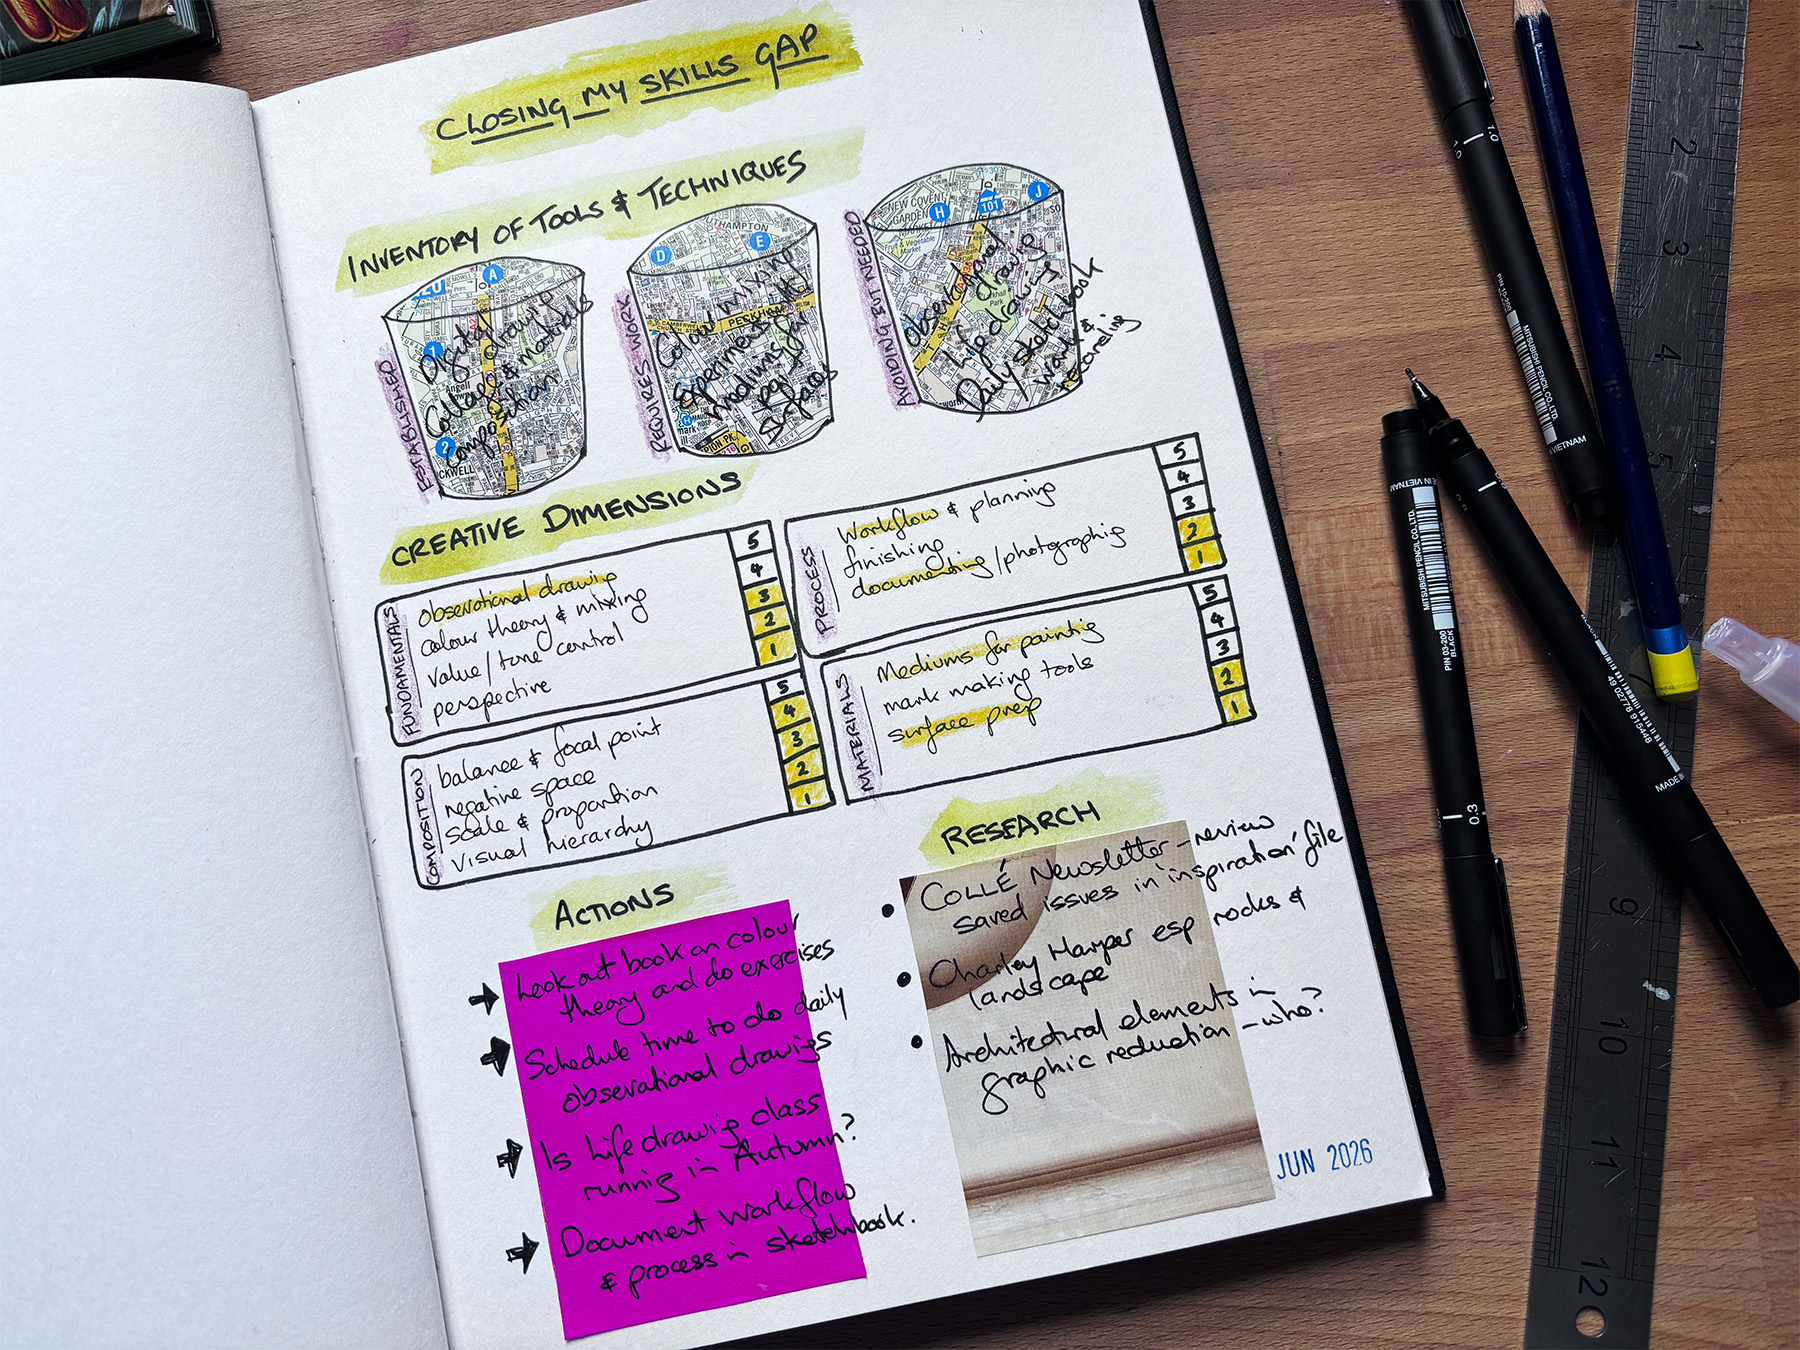 CLOSING MY SKILLS GAP
INVENTORY OF TOOLS & TECHNIQUES
ESTABLISHED
Digital drawing
Collage & materials
Composition
REQUIRES WORK
Colour mixing
Experiment with
mediums for
prep surfaces
AVOIDING BUT NEEDED
Observational
drawing
life drawing
Daily sketchbook
work &
recording
CREATIVE DIMENSIONS
FUNDAMENTALS
observational drawing
colour theory & mixing
value/tone control
perspective
5
4
3
2
1
PROCESS
Workflow & planning
finishing
documenting/photographing
5
4
3
2
1
COMPOSITION
balance & focal point
negative space
scale & proportion
visual hierarchy
5
4
3
2
1
MATERIALS
Mediums for painting
mark making tools
surface prep
5
4
3
2
1
ACTIONS
Look out book on colour
theory and do exercises
Schedule time to do daily
observational drawings
Is Life drawing class
running in Autumn?
Document workflow
& process in sketchbook.
RESEARCH
COLLÉ Newsletter - review
saved issues in 'inspiration' file
Charley Harper esp rocks &
landscape
Architectural elements in
graphic reduction - who?
JUN 2026
A
1
Angell
2
CKWELL
D
E
CAMBERWELL
PECKHAM
NEW COVENT
GARDEN
H
101
J
Park
1.0
PIN 10-200
MITSUBISHI PENCIL CO.,LTD.
VIETNAM
MADE IN VIETNAM
MITSUBISHI PENCIL CO.,LTD.
PIN 03-200
BLACK
0.3
49 02778 915448
MADE IN
1
2
3
4
5
9
10
11
12